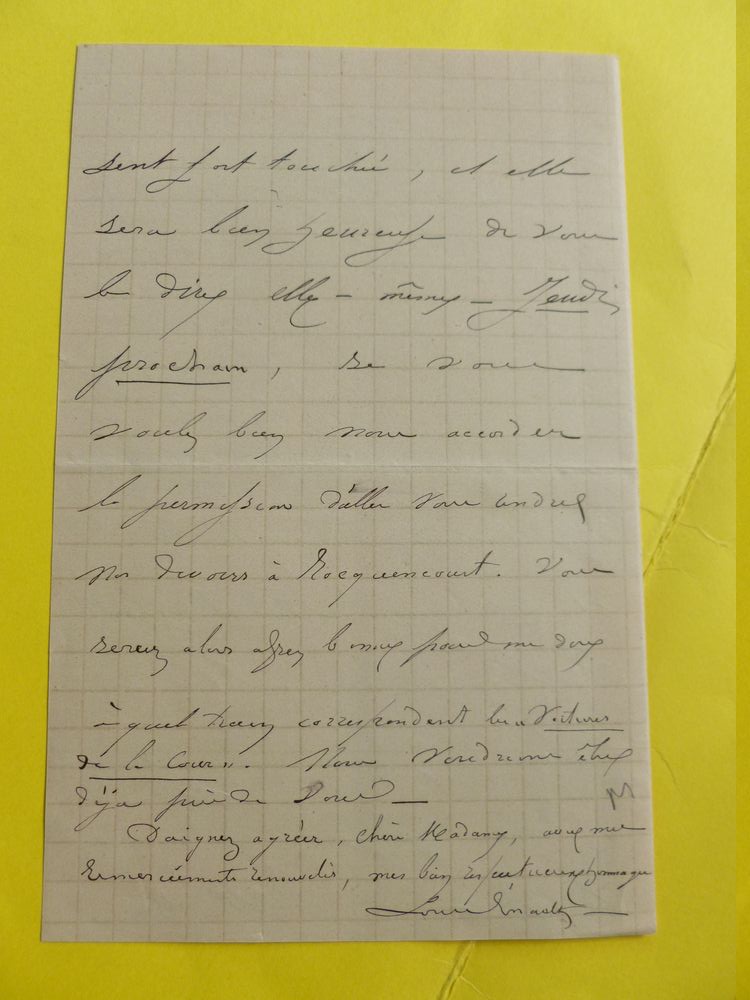 sent fort touchée, et elle
sera bien heureuse de vous
le dire elle-même, Jeudi
prochain, si vous
voulez bien nous accorder
la permission d'aller vous rendre
nos devoirs à Rocquencourt. Vous
serez alors assez bonne pour me dire
à quel train correspondent les « Voitures
de la Cour ». Nous voudrions être
déjà près de vous —
Daignez agréer, chère Madame, avec mes
remerciements renouvelés, mes bien respectueux hommages
Louis Énault —
M